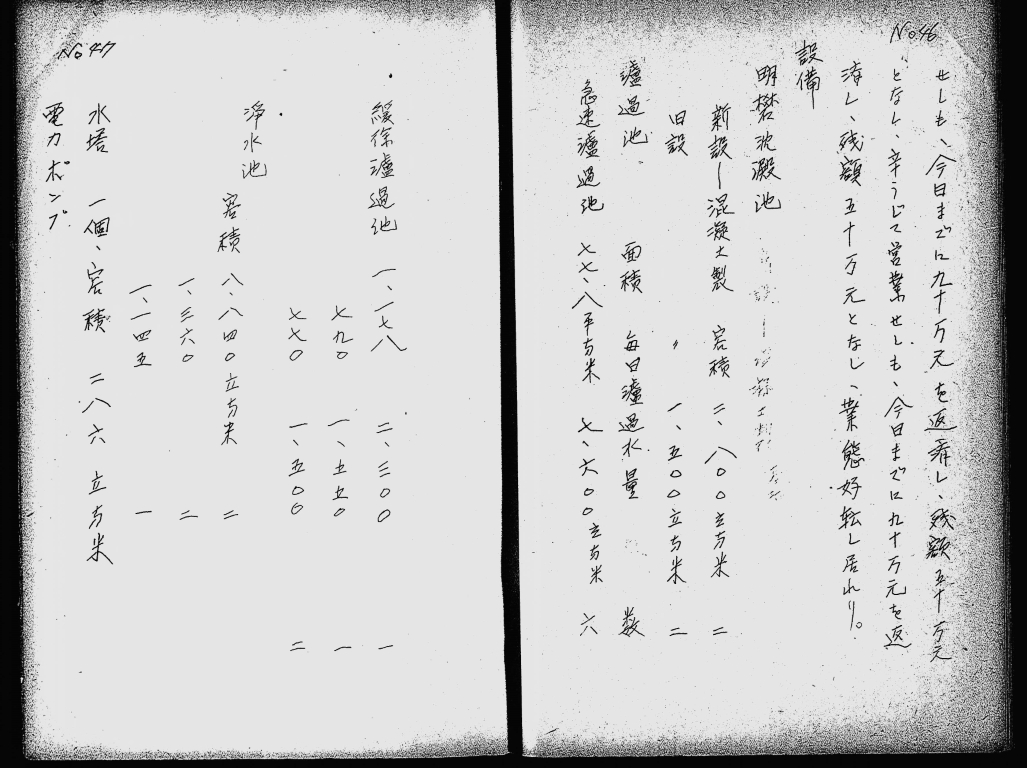 No 46
せしも、今日までに九十万元を返済し、残額五十万元
となし、辛うじて営業せしも、今日までに九十万元を返
済し、残額五十万元となし、業態好転し居れり。
設備
明礬沈澱池
新設ー混凝土製 容積 二、八〇〇立方米 二
旧設 〃 一、五〇〇立方米 二
濾過池 面積 毎日濾過水量 数
急速濾過池 七七・八平方米 七、六〇〇立方米 六
No 47
緩徐濾過池 一、一七八 二、三〇〇 一
七九〇 一、五五〇 一
七七〇 一、五〇〇 二
浄水池
容積 八、八四〇立方米 二
一、三六〇 二
一、一四五 一
水塔 一個、容積 二八六立方米
電力ポンプ